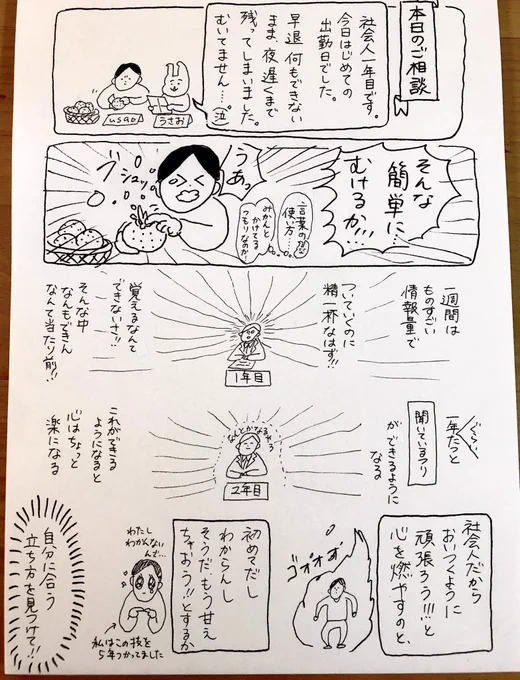 本日のご相談
社会人一年目です。
今日はじめての
出勤日でした。
早退 何もできない
まま、夜遅くまで
残ってしまいました。
むいてません…。泣
うさお
usao
そんな
簡単に…
むけるか!!…
言葉の
使い方…
みかんと
かけてる
つもりなのか…
うあっ
ブシュッ
一週間は
ものすごい
情報量で
ついていくのに
精一杯なはず!!
1年目
覚えるなんて
できないさ!!
そんな中
なんもできん
なんて当たり前!!
一年たつと
ぐらい
聞いているフリ
ができるように
なる
なんとかなる
2年目
これができる
ようになると
心はちょっと
楽になる
社会人だから
おいつくように
頑張ろう!!!と
心を燃やすのと、
ゴオオオ
初めてだし
わからんし
そうだもう甘え
ちゃおう!!とするか
わたし
わかんない
んだ…
私はこの技を
5年つかってました
自分に合う
立ち方を見つけて!!